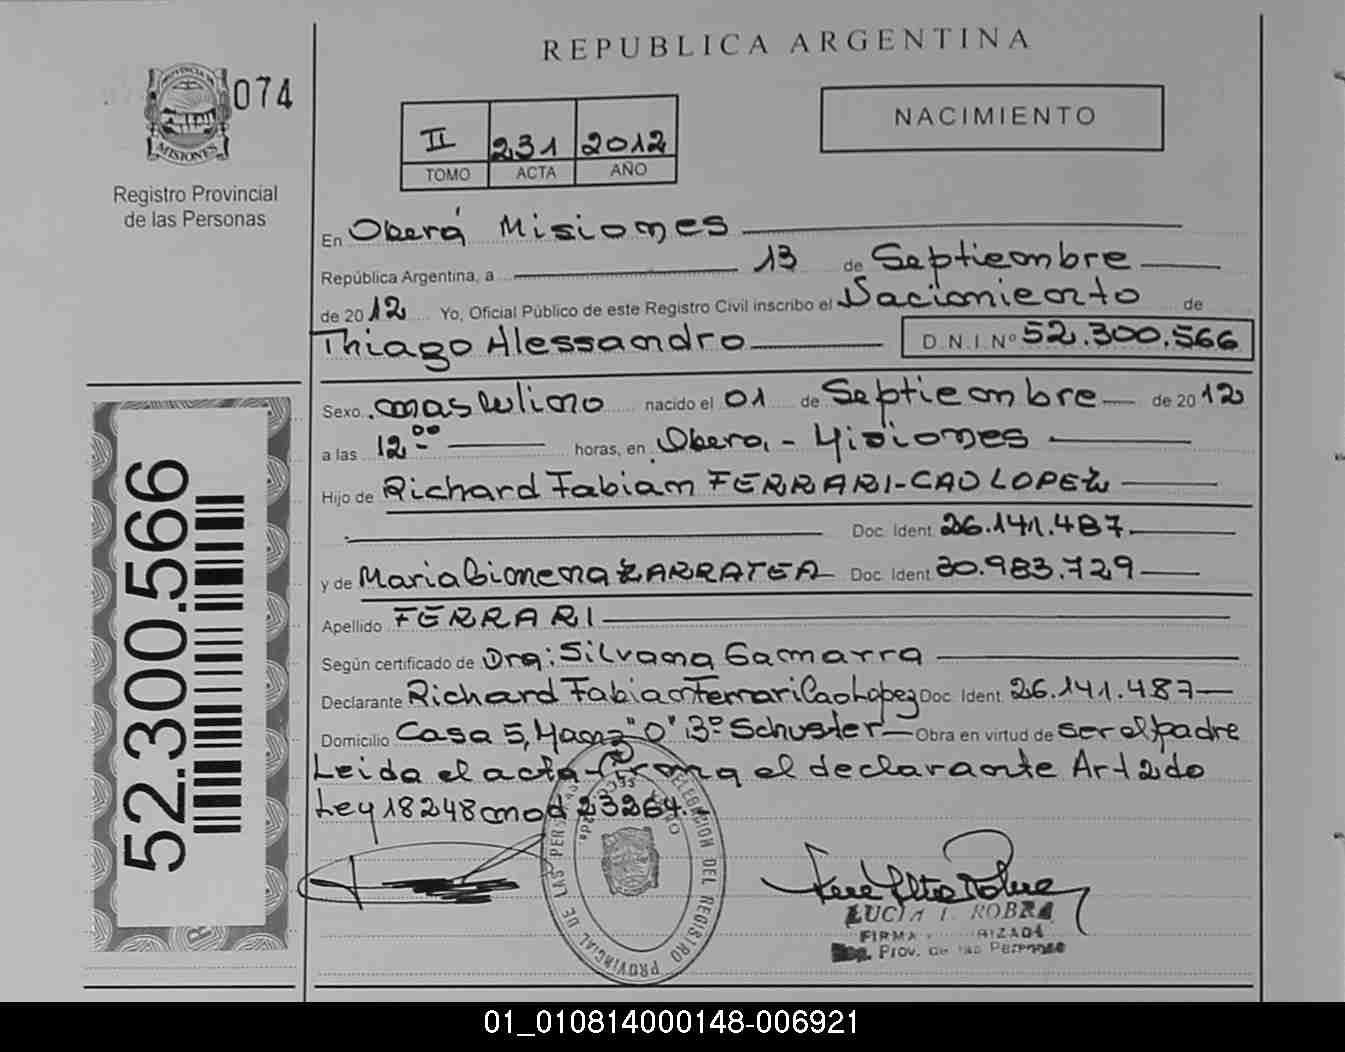 REPUBLICA ARGENTINA
074
MISIONES
Registro Provincial
de las Personas
II 231 2012
TOMO ACTA AÑO
NACIMIENTO
En Oberá Misiones
República Argentina, a 13 de Septiembre
de 2012 Yo, Oficial Público de este Registro Civil inscribo el Nacimiento de
Thiago Alessandro D.N.I. Nº 52.300.566
Sexo masculino nacido el 01 de Septiembre de 2012
a las 12.00 horas, en Obera, - Misiones
Hijo de Richard Fabian FERRARI-CAO LOPEZ
Doc. Ident. 26.141.487
y de Maria Gimena ZARRATEA Doc. Ident. 30.983.729
Apellido FERRARI
Según certificado de Dra: Silvana Gamarra
Declarante Richard Fabian Ferrari Cao Lopez Doc. Ident. 26.141.487
Domicilio Casa 5, Manz "O" Bº Schuster Obra en virtud de ser el padre
Leida el acta firma el declarante Art 2do
Ley 18248 mod 23264.-
DELEGACION DEL REGISTRO PROVINCIAL DE LAS PERSONAS
LUCIA I. ROBRA
FIRMA
Reg. Prov. de las Personas
52.300.566
01_010814000148-006921